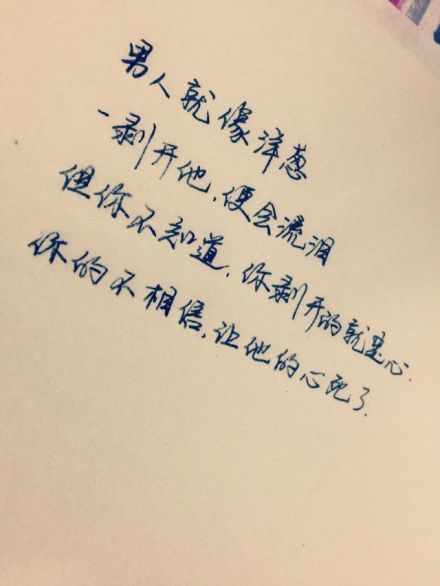 男人就像洋葱
一剥开他,便会流泪
但你不知道,你剥开的就是心.
你的不相信,让他的心死了.